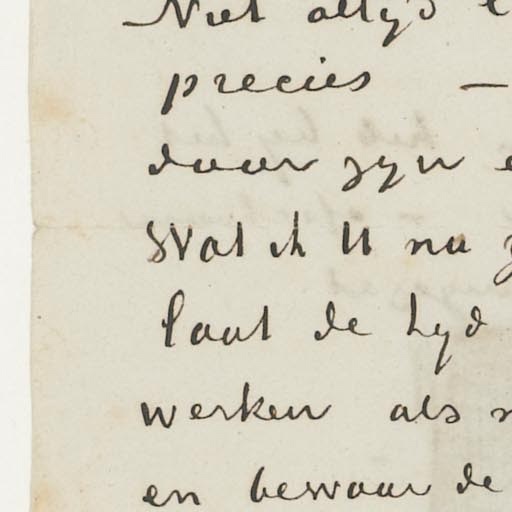 Niet altyd
precies —
daar zyn
Wat ik U nu
laat de tyd
werken als
en bewaar de